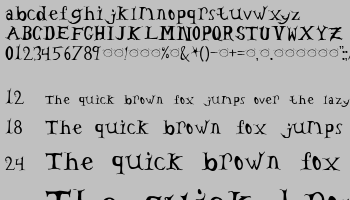 abcdefghijklmnopqrstuvwxyz
ABCDEFGHIJKLMNOPQRSTUVWXYZ
0123456789
12 The quick brown fox jumps over the lazy
18 The quick brown fox jumps
24 The quick brown fox
The quick bro